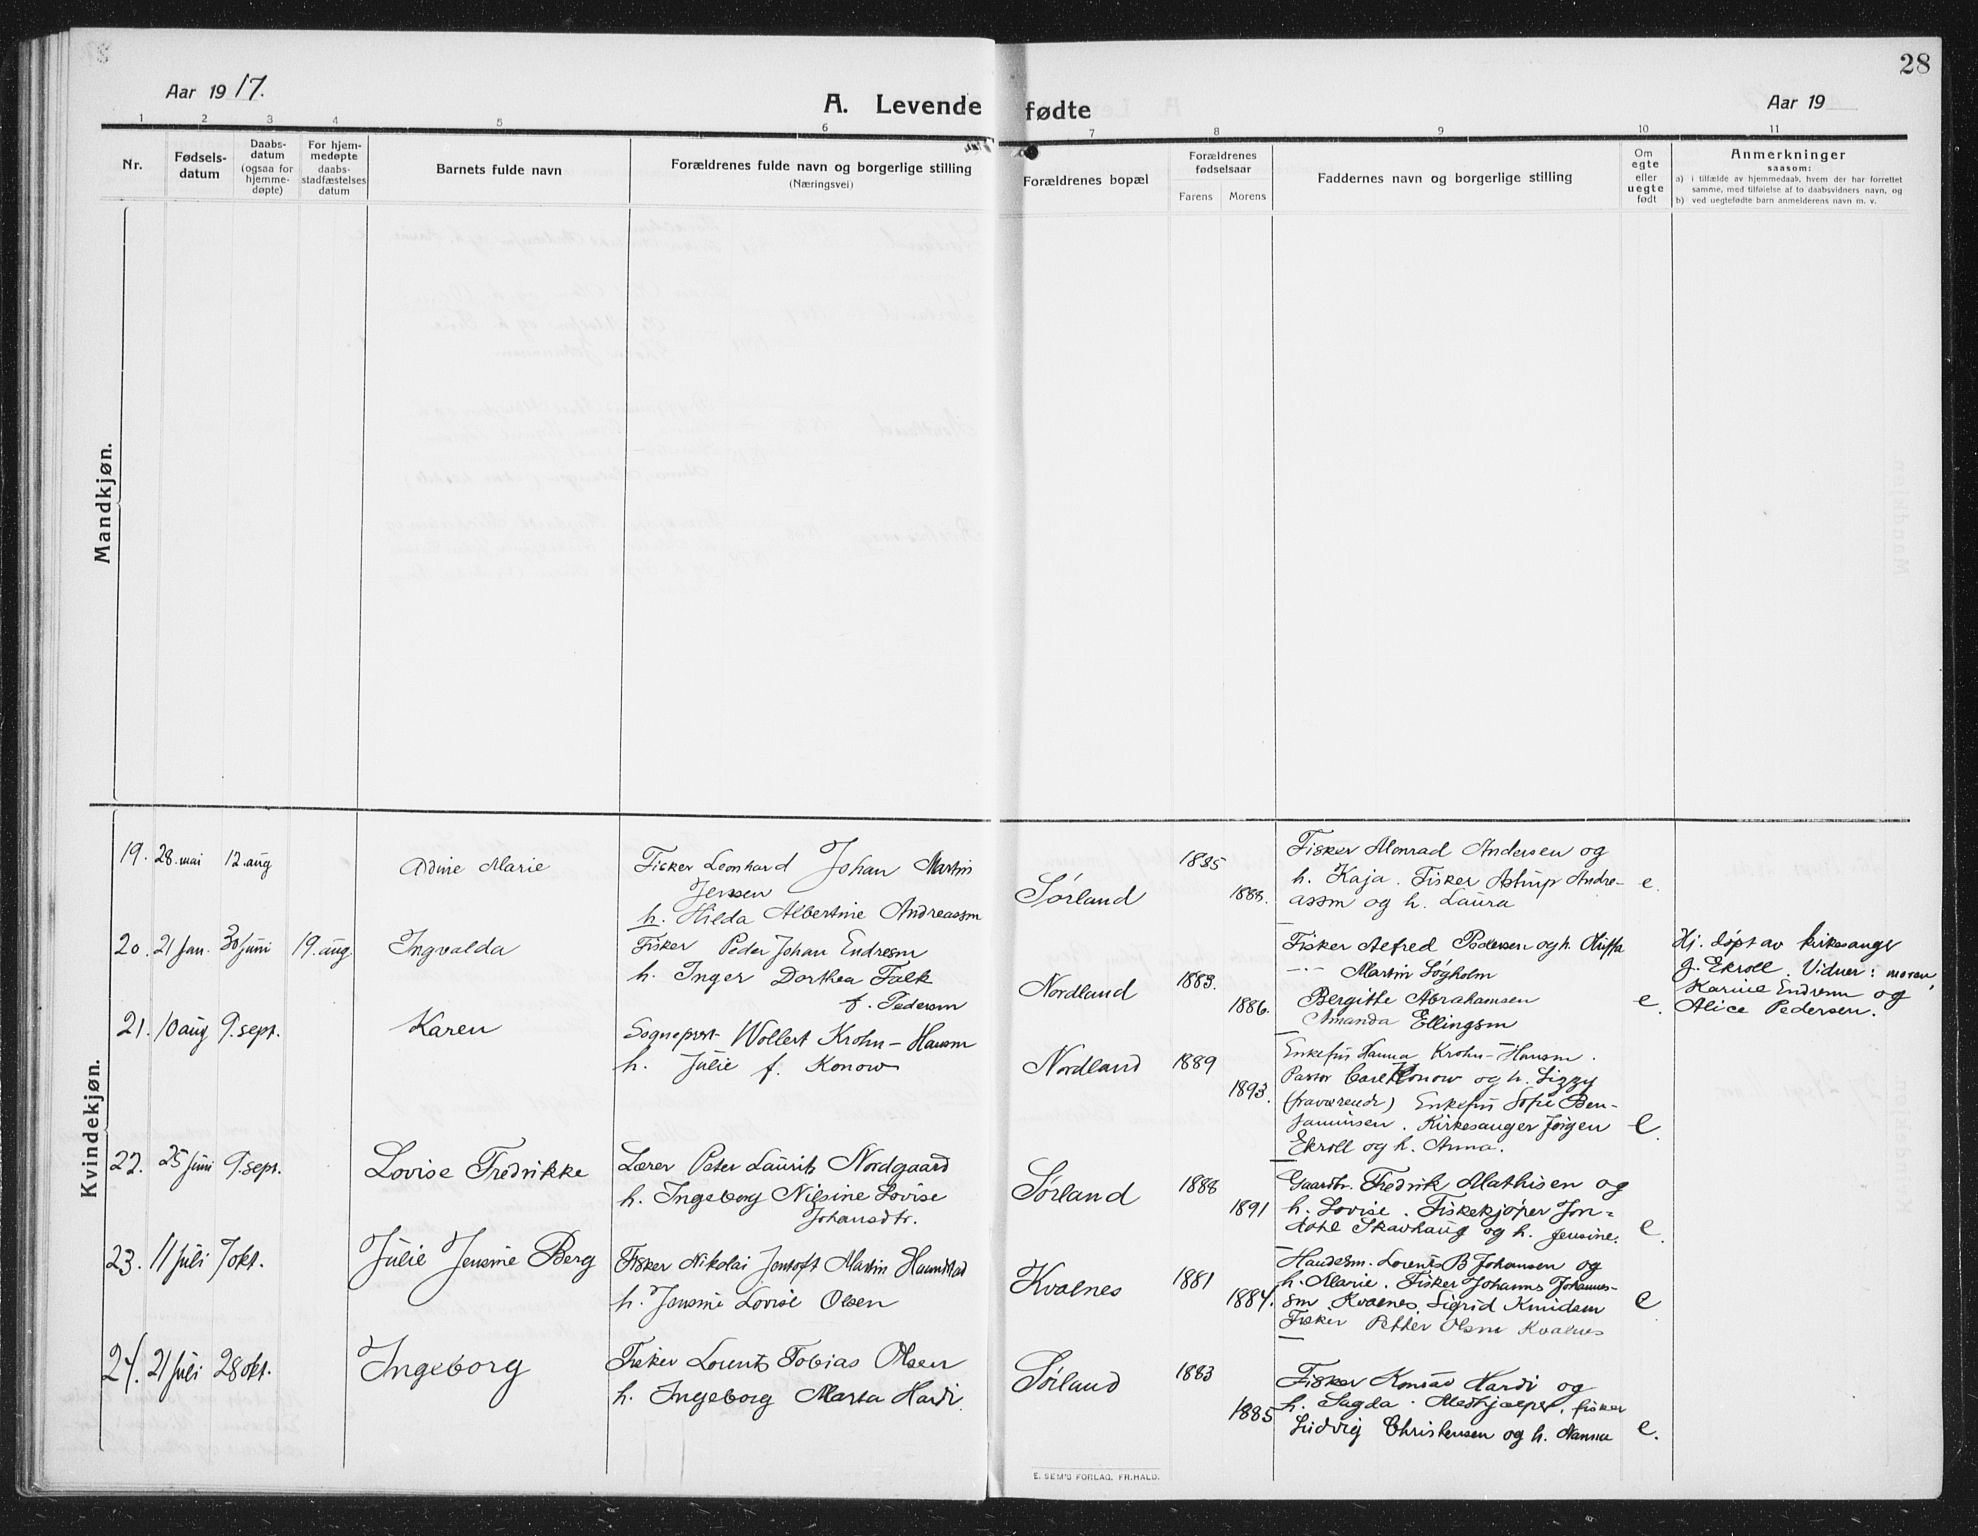 28
Aar 1917.
A. Levende fødte
Aar 19
1 2 3 4 5 6 7 8 9 10 11
Nr.
Fødsels-
datum
Daabs-
datum
(ogsaa for
hjemme-
døpte)
For hjem-
medøpte
daabs-
stadfæstelses
datum
Barnets fulde navn
Forældrenes fulde navn og borgerlige stilling
(Næringsvei)
Forældrenes bopæl
Forældrenes
fødselsaar
Farens Morens
Faddernes navn og borgerlige stilling
Om
egte
eller
uegte
født
Anmerkninger
saasom:
a) i tilfælde av hjemmedaab, hvem der har forrettet
samme, med tilføielse af to daabsvidners navn, og
b) ved uegtefødte barn anmelderens navn m. v.
Mandkjøn.
Kvindekjøn.
19. 28. mai 12. aug
Adine Marie
Fisker Leonhard Johan Martin
Jensen
h. Hilda Albertine Andreassen
Sørland
1885
1888.
Fisker Monrad Andersen og
h. Kaja. Fisker Astrup Andre-
assen og h. Laura
e.
20. 21 jan. 30 juni 19. aug.
Ingvalda
Fisker Peder Johan Endresen
h. Inger Dorthea Falk
f. Pedersen
Nordland
1883.
1886.
Fisker Alfred Pedersen og h.
Martin Søgholm
Bergitte Abrahamsen
Amanda Ellingsen
e.
Hj. døpt av kirkesanger
J. Ekroll. Vidner: moren,
Karine Endresen og
Alice Pedersen.
21. 10 aug 9. sept.
Karen
Sogneprest Wollert Krohn-Hansen
h. Julie f. Konow
Nordland
1889
1893.
Enkefru Hanna Krohn-Hansen.
Pastor Carl Konow og h. Lizzy
(fraværende) Enkefru Sofie Ben-
jaminsen. Kirkesanger Jørgen
Ekroll og h. Anna.
e.
22. 25 juni 9. sept.
Lovise Fredrikke
Lærer Peter Laurits Nordgaard
h. Ingeborg Nilsine Lovise
Johansdtr.
Sørland
1888
1891
Gaardbr. Fredrik Mathisen og
h. Lovise. Fiskekjøper Jon-
Skavhaug og h. Jensine.
e.
23. 11 juli 7 okt.
Julie Jensine Berg
Fisker Nikolai Jentoft Martin
h. Jensine Lovise Olsen
Kvalnes
1881
1884.
Handelsm. Lorents B Johansen og
h. Marie. Fisker Johannes Johannes-
sen Kvalnes, Sigrid Knudsen
Fisker Petter Olsen Kvalnes
e
24. 21 juli 28 okt.
Ingeborg
Fisker Lorents Tobias Olsen
h. Ingeborg Marta Hardi.
Sørland
1883
1885
Fisker Konrad Hardi og
h. Magda. fisker
Ludvig Christensen og h. Nanna
e.
E. SEM'S FORLAG, FR.HALD.